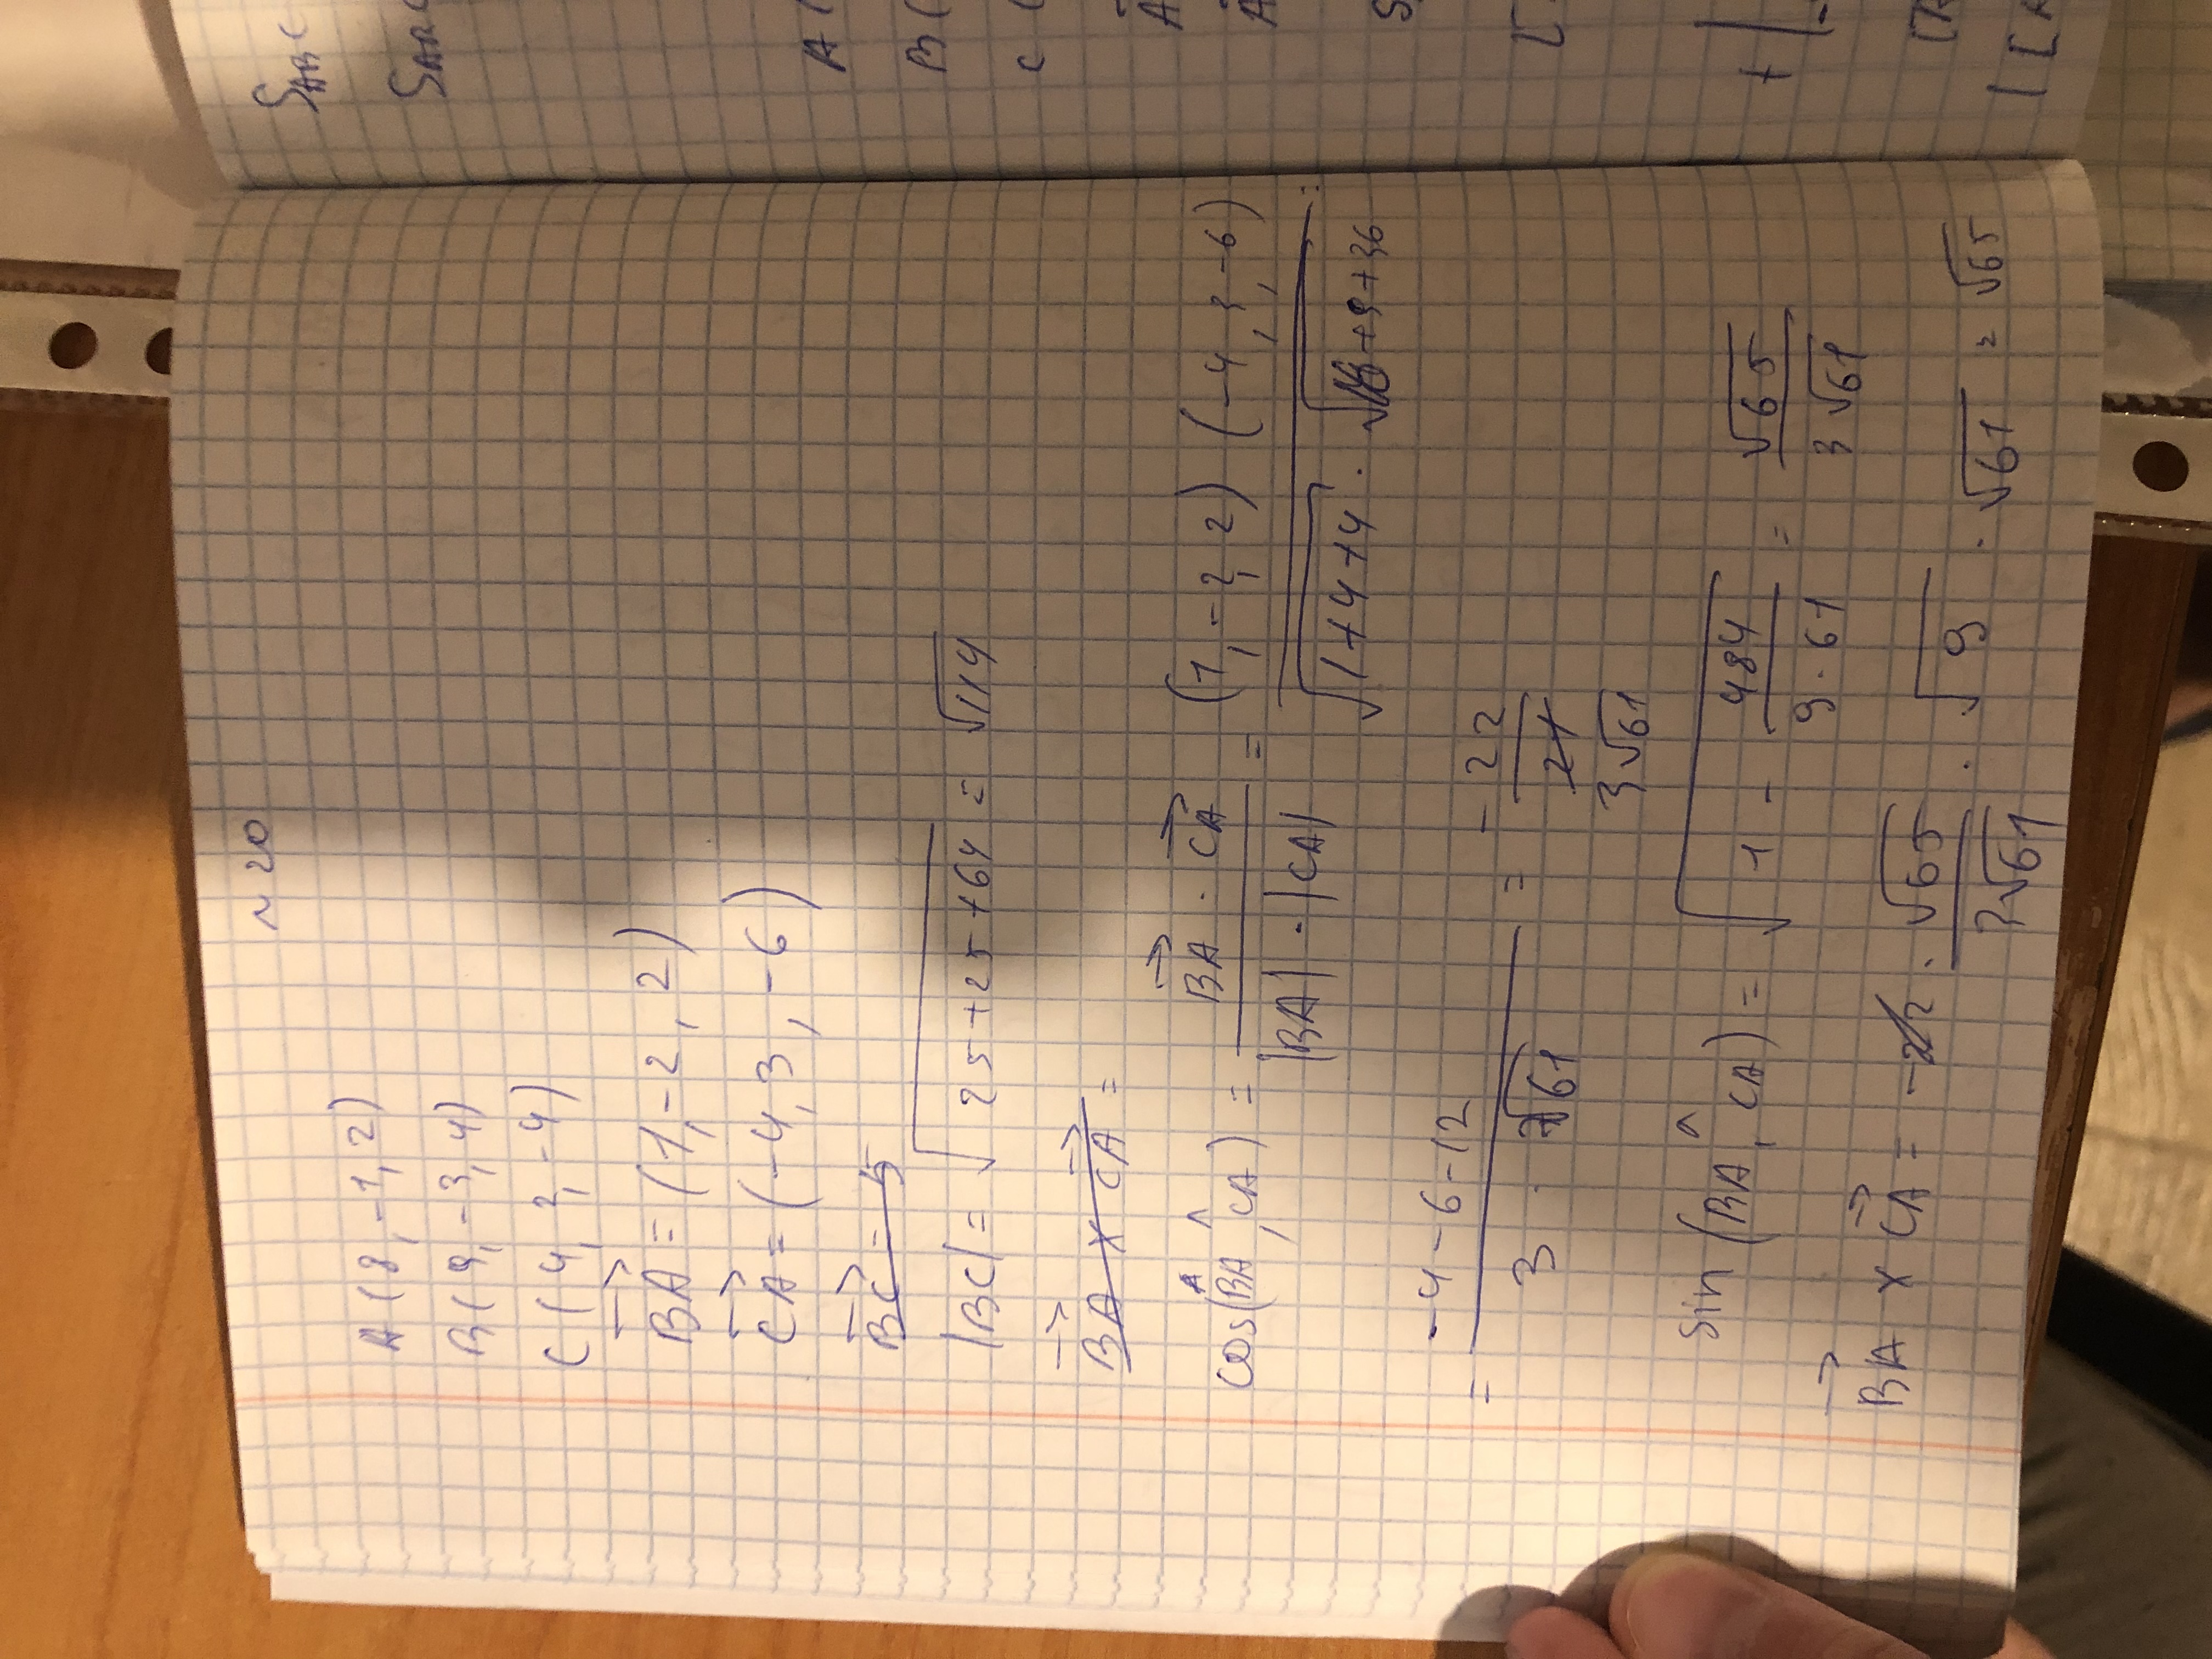 ~ 20
A (8, -1, 2)
B (9, -3, 4)
C (4, 2, -4)
BA = (1, -2, 2)
CA = (-4, 3, -6)
BC = 5
|BC| = √25+25+64 = √114
BA x CA =
cos(BA, CA) = BA · CA / |BA| · |CA| = (1, -2, 2) (-4, 3, -6) / √1+4+4 · √16+9+36 =
= -4-6-12 / 3 · √61 = -22 / 21 3√61
sin (BA, CA) = √1 - 484 / 9·61 = √65 / 3√61
BA x CA = √65 / 3√61 · √9 · √61 = √65
SABC
SABC
A (
B (
C (
A
A
S
[
+
[A
| [A